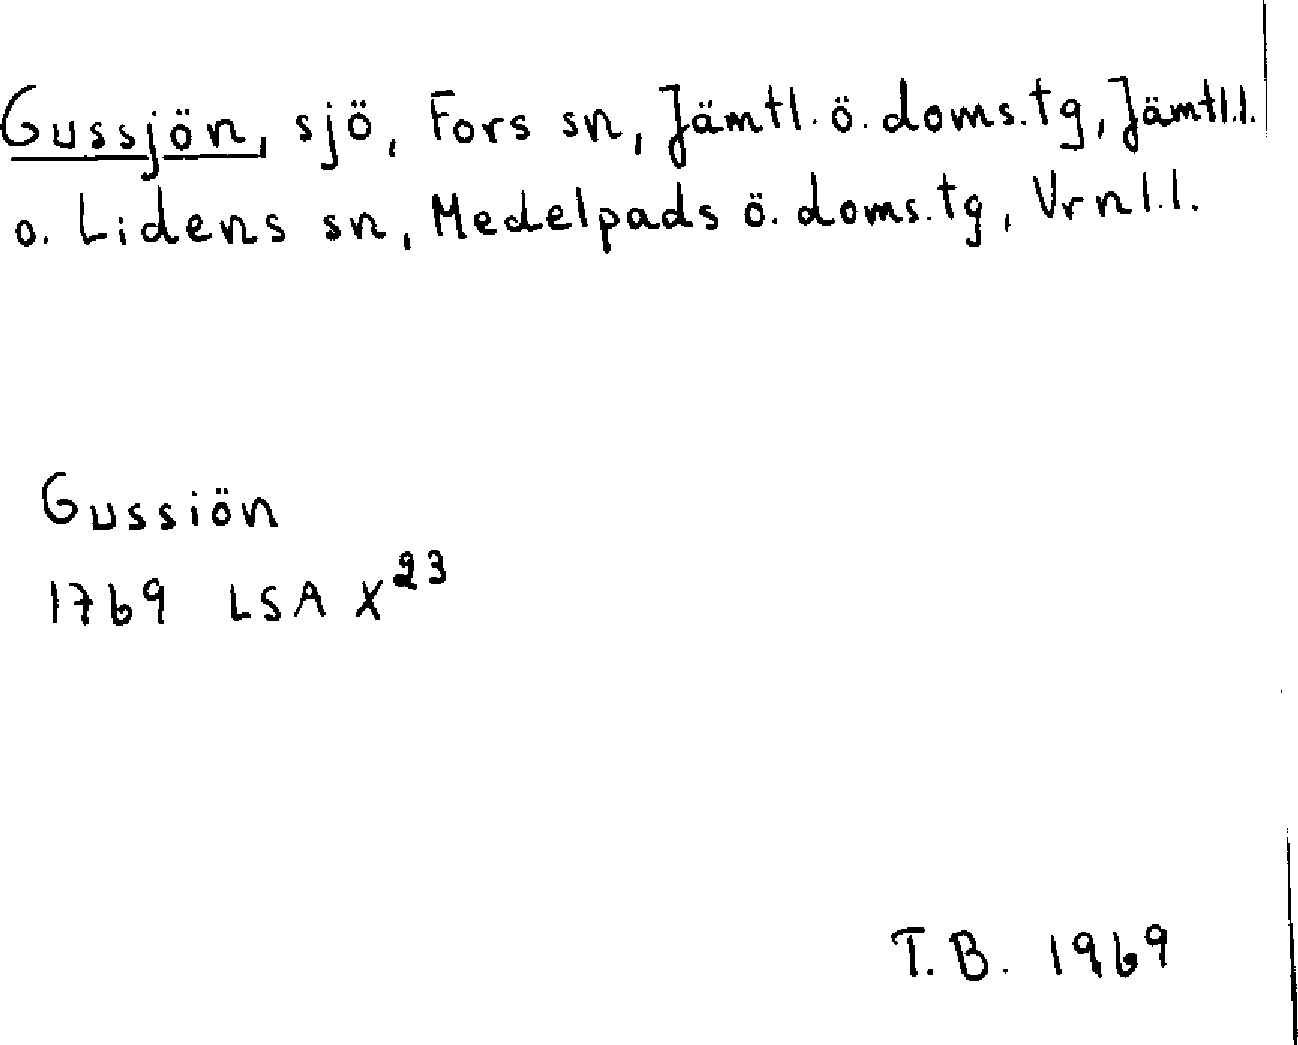 Gussjön, sjö, Fors sn, Jämtl. ö. doms.tg, Jämtl.l.
o. Lidens sn, Medelpads ö. doms.tg, Vrnl.l.
Gussiön
1769 LSA X²³
T.B. 1969